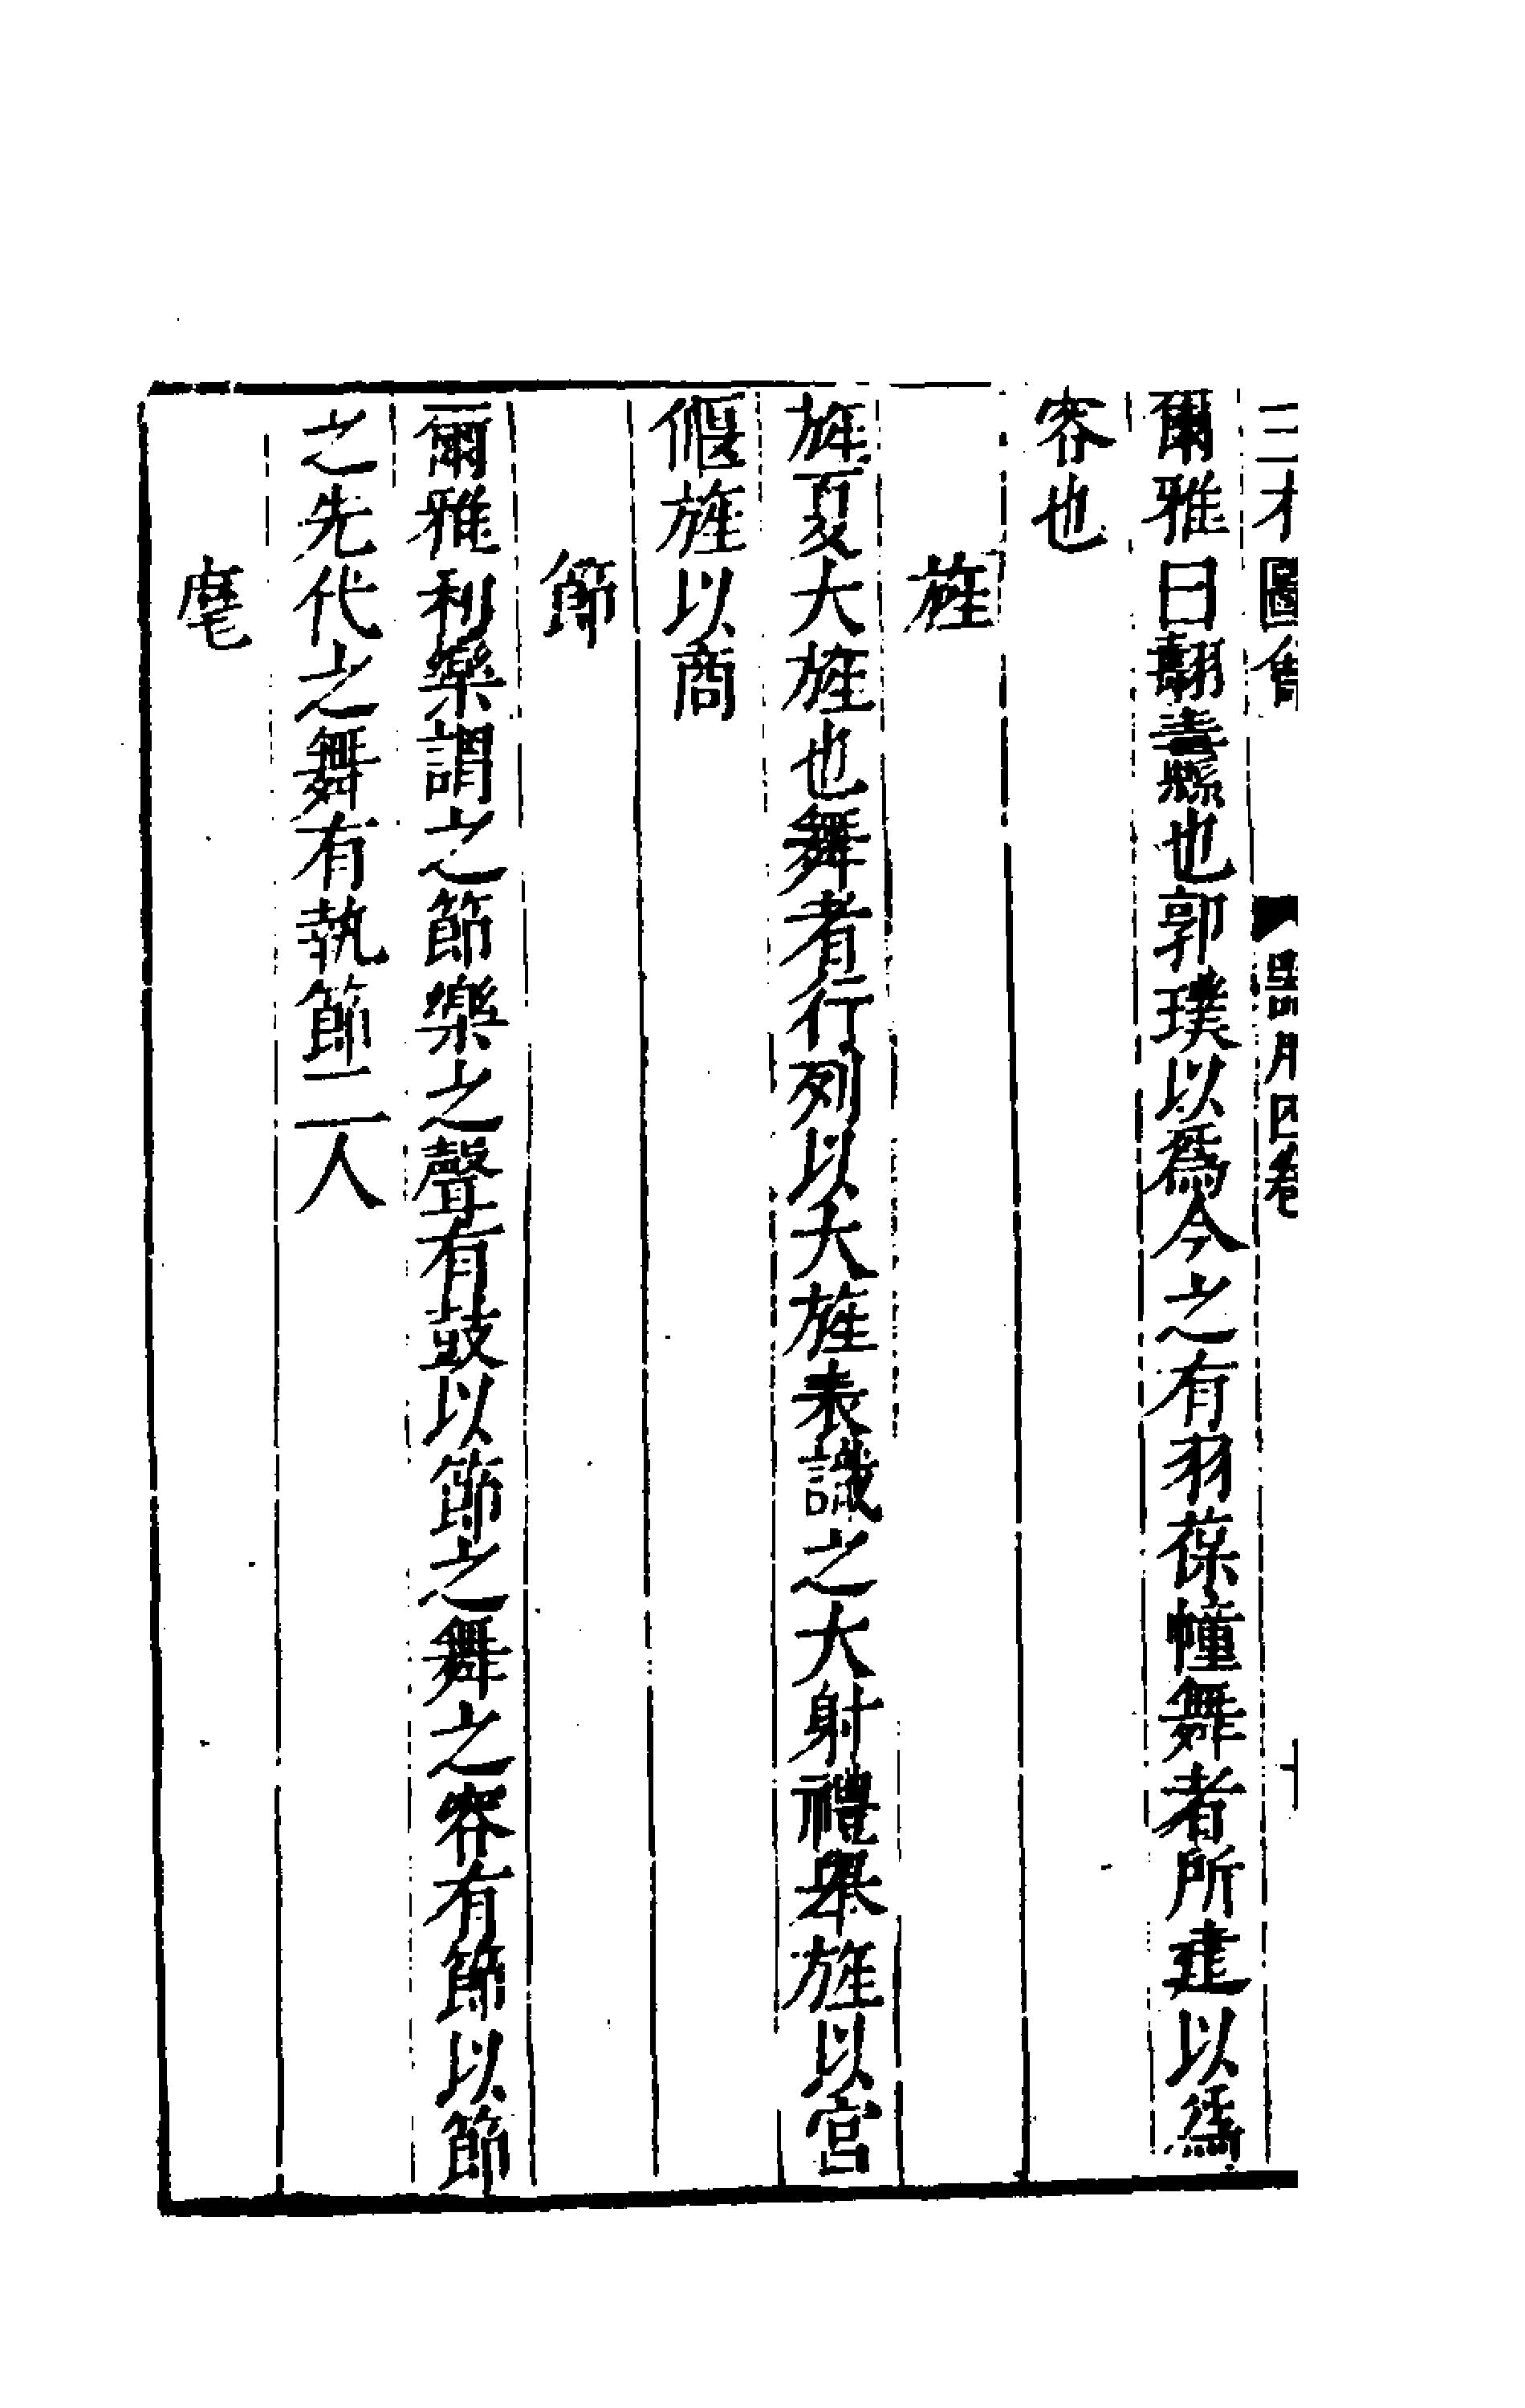 三才圖會 器用四卷 十
爾雅曰翿纛也郭璞以爲今之有羽葆幢舞者所建以爲
容也
旌
旌夏大旌也舞者行列以大旌表識之大射禮舉旌以宮
偃旌以商
節
爾雅利樂謂之節樂之聲有鼓以節之舞之容有節以節
之先代之舞有執節二人
麾